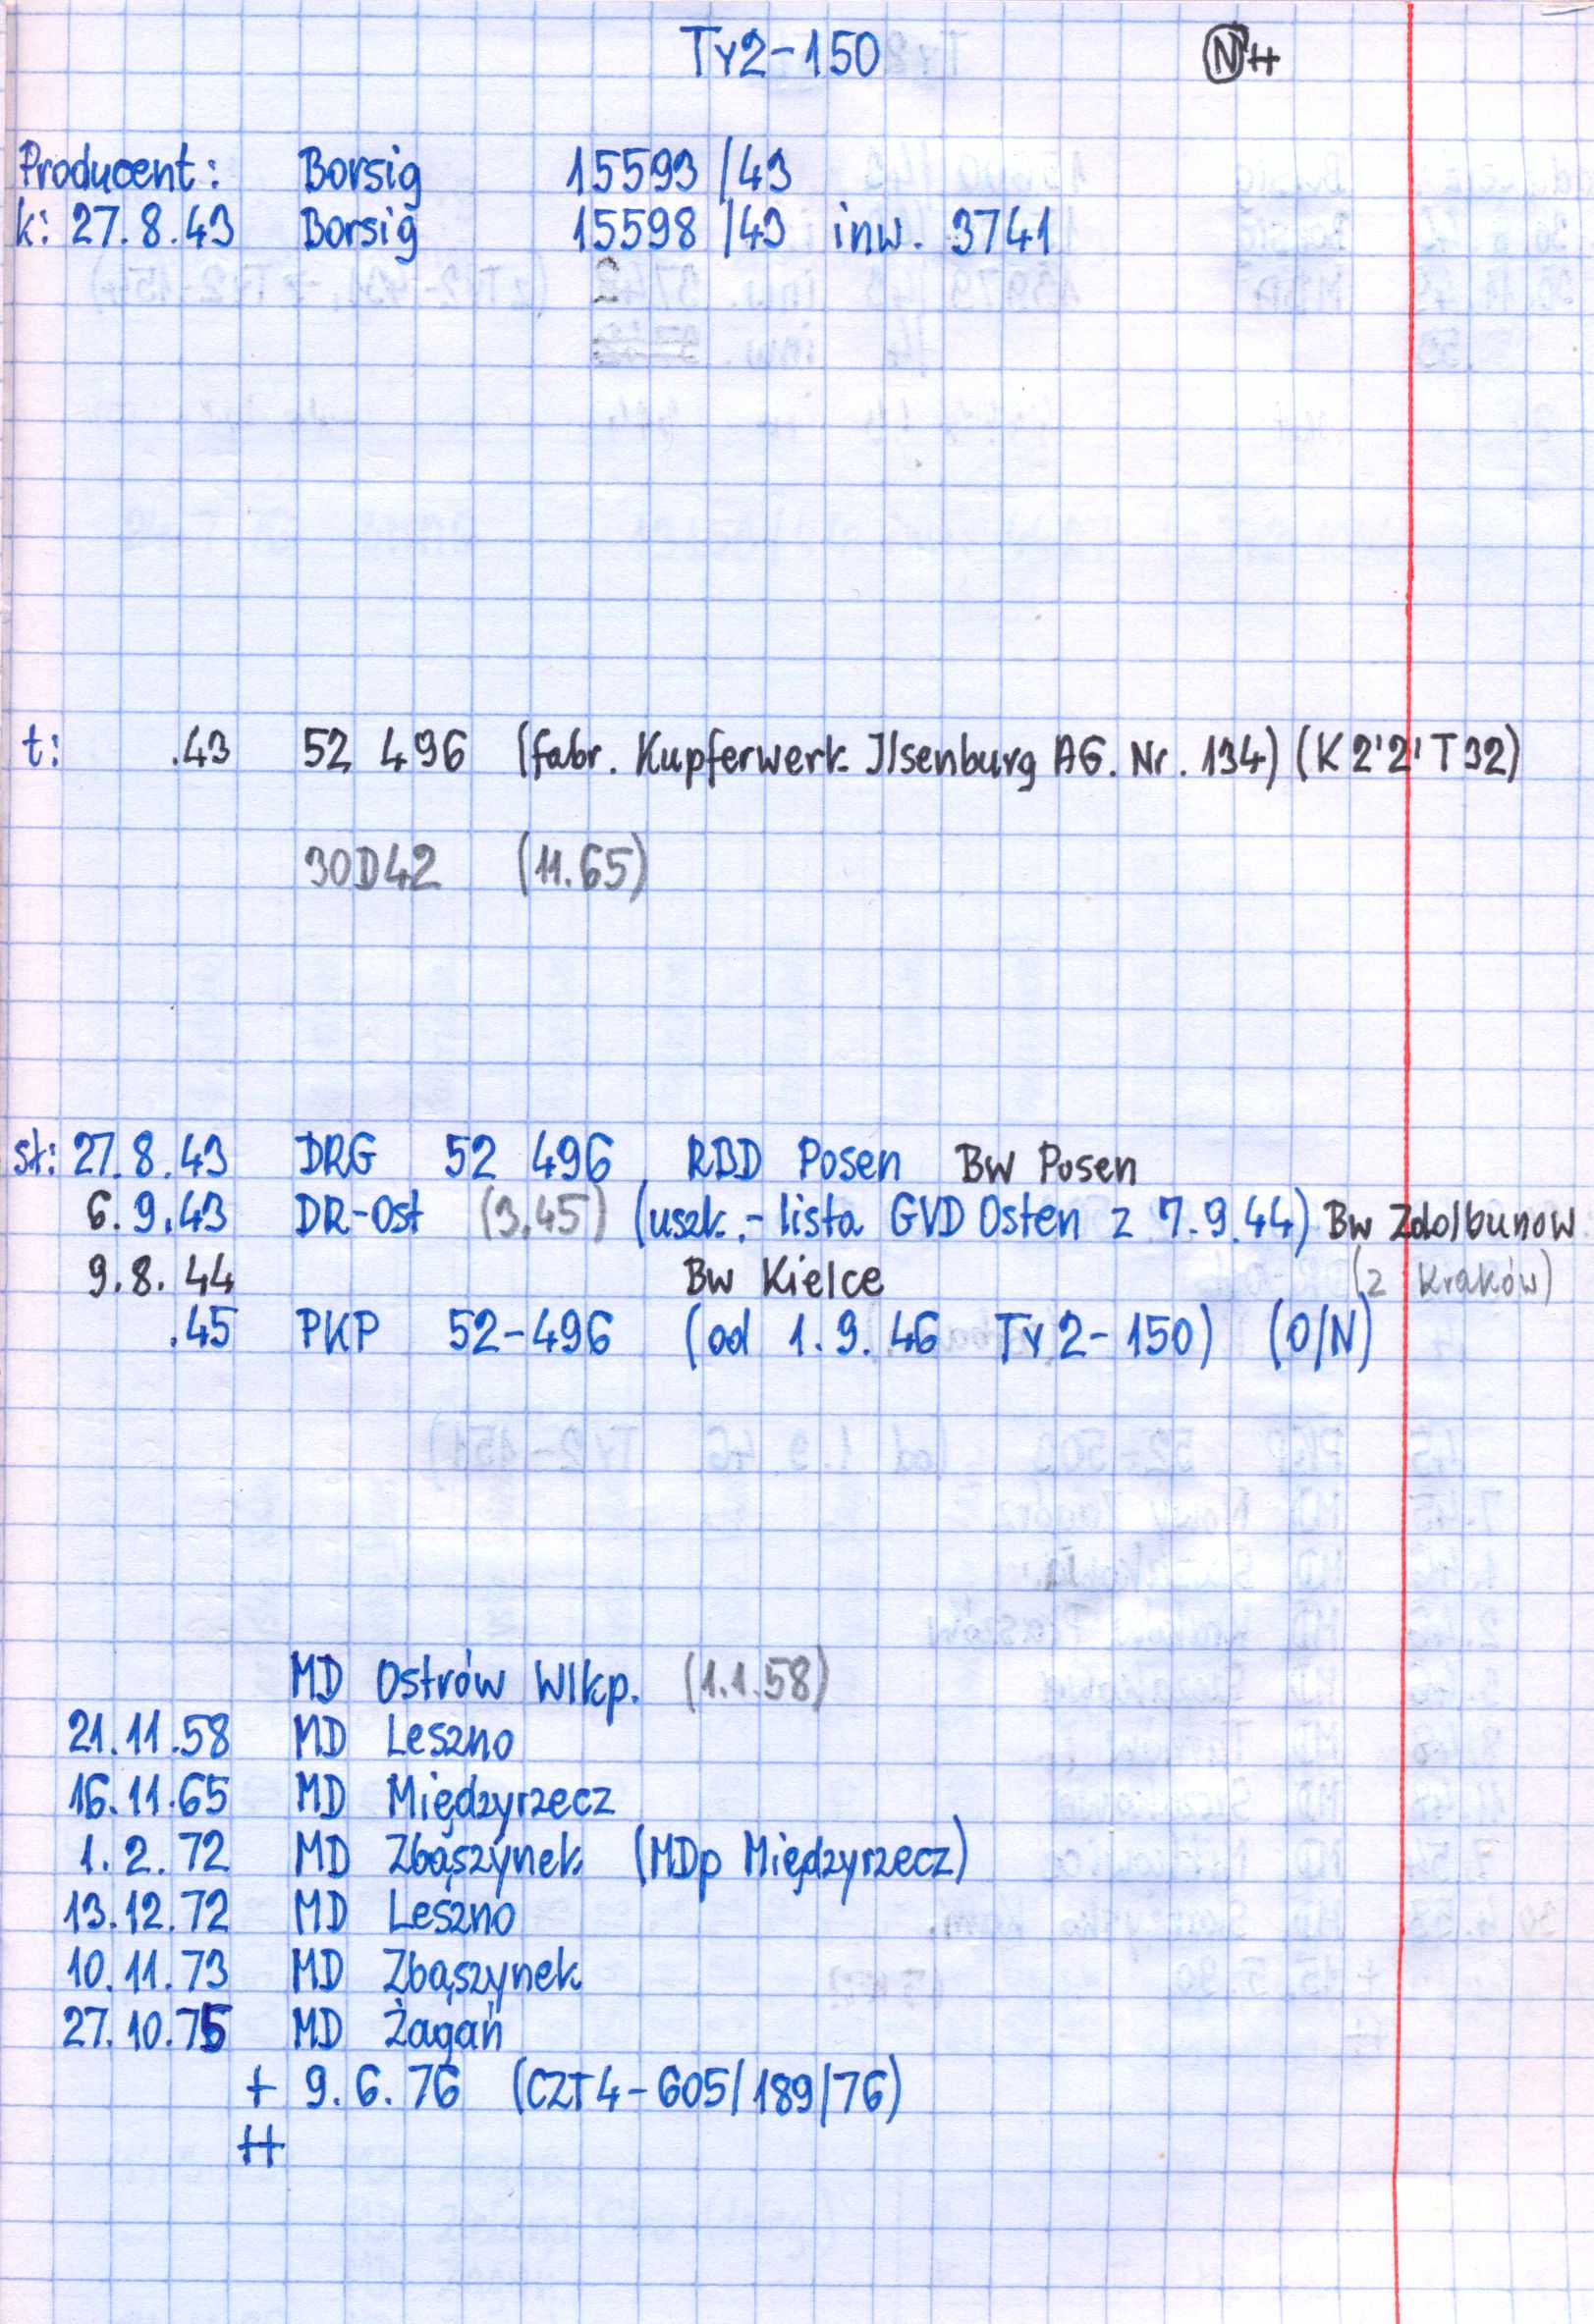 Ty2-150 (N) ++
Producent: Borsig 15593/43
k: 27.8.43 Borsig 15598/43 inw. 3741
t: .43 52 496 (fabr. Kupferwerk Ilsenburg AG. Nr. 134) (K 2'2' T 32)
30D42 (11.65)
st: 27.8.43 DRG 52 496 RBD Posen Bw Posen
6.9.43 DR-Ost (3.45) (uszk.- lista GVD Osten z 7.9.44) Bw Zdolbunow
9.8.44 Bw Kielce (z Kraków)
.45 PKP 52-496 (od 1.9.46 Ty2-150) (O/N)
MD Ostrów Wlkp. (1.1.58)
21.11.58 MD Leszno
16.11.65 MD Międzyrzecz
1.2.72 MD Zbąszynek (MDp Międzyrzecz)
13.12.72 MD Leszno
10.11.73 MD Zbąszynek
27.10.75 MD Żagań
+ 9.6.76 (CZT4-605/189/76)
++